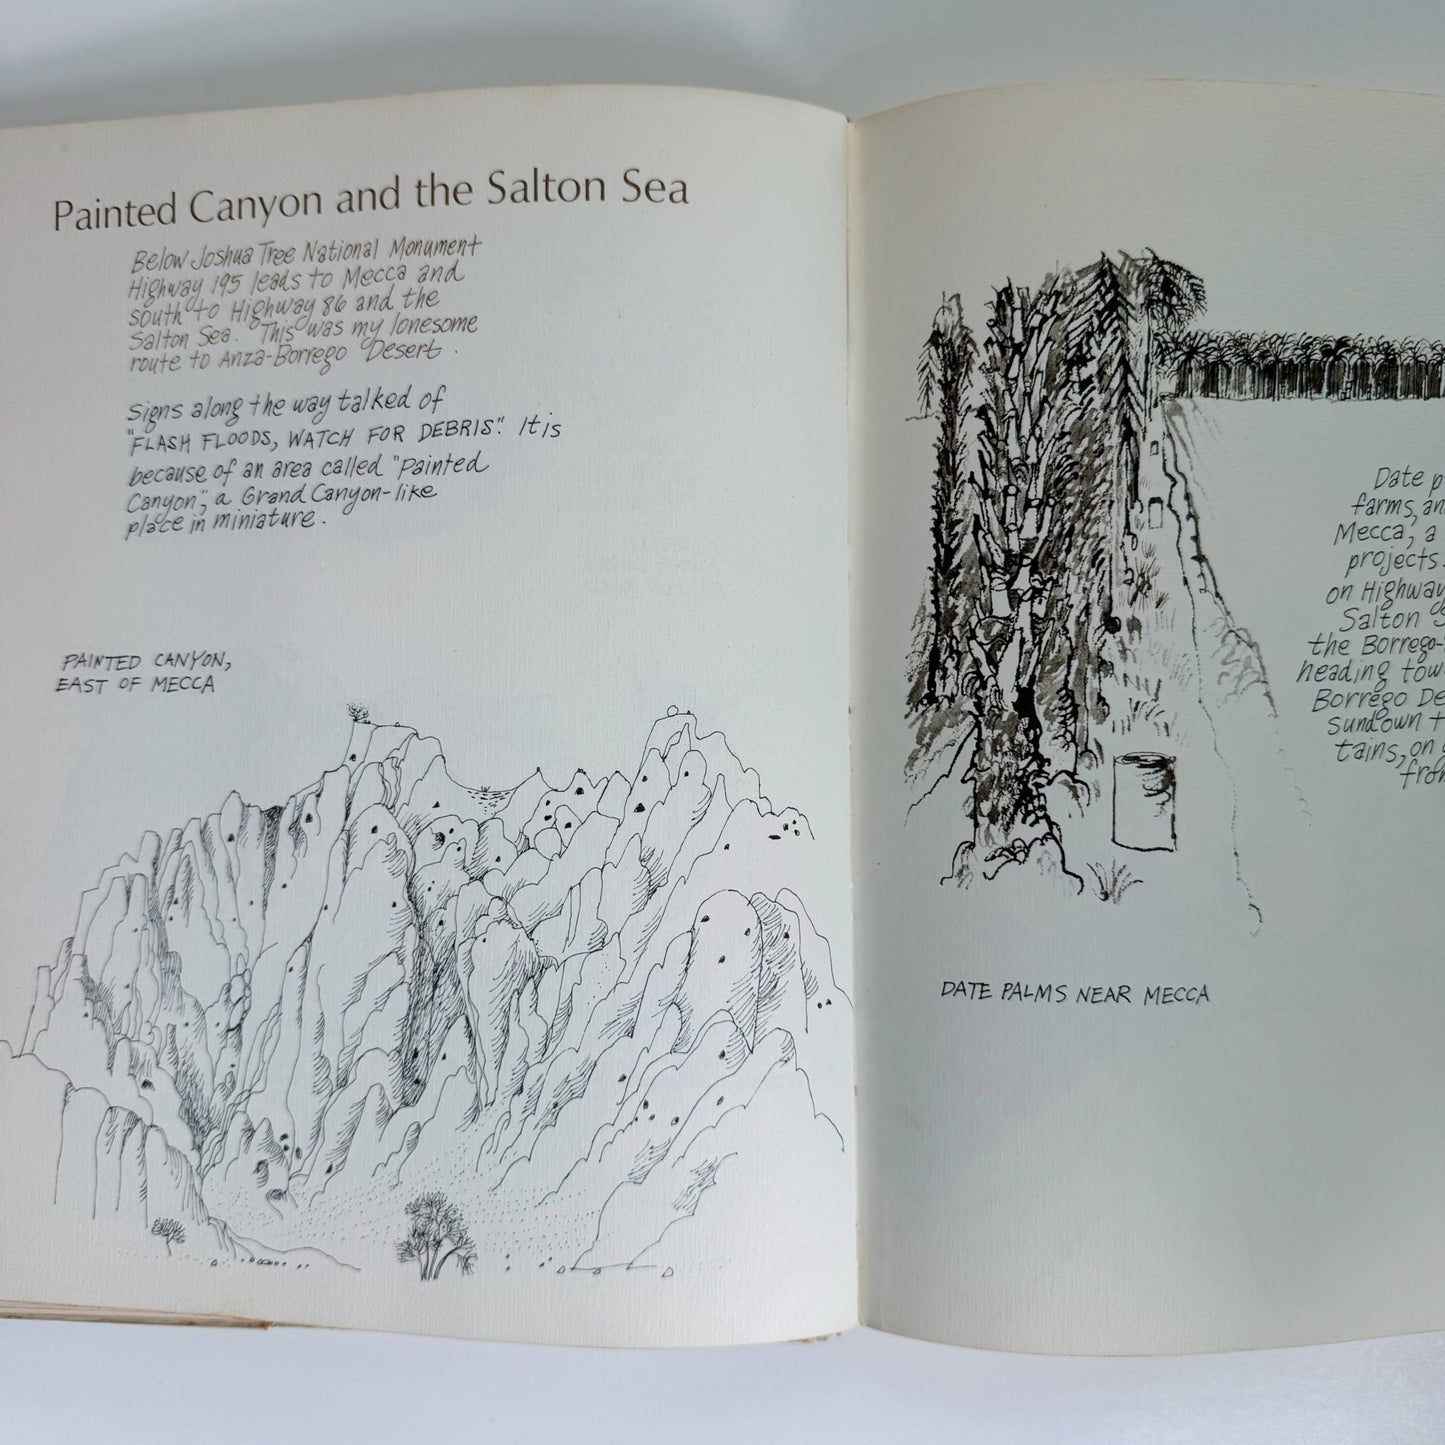 Painted Canyon and the Salton Sea
Below Joshua Tree National Monument
Highway 195 leads to Mecca and
south to Highway 86 and the
Salton Sea. This was my lonesome
route to Anza-Borrego Desert.
Signs along the way talked of
"FLASH FLOODS, WATCH FOR DEBRIS". It is
because of an area called "Painted
Canyon", a Grand Canyon-like
place in miniature.
PAINTED CANYON,
EAST OF MECCA
Date
farms,
Mecca, a
projects.
on Highway
Salton
the Borrego-
heading
Borrego
sundown
on
DATE PALMS NEAR MECCA